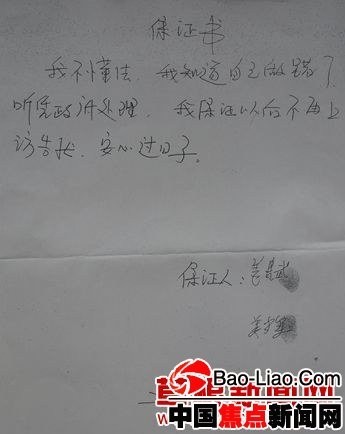 保证书
我不懂法，我知道自己做错了，
听凭政府处理，我保证以后不再上
访告状，安心过日子。
保证人：
Bao-Liao.Com
中国焦点新闻网